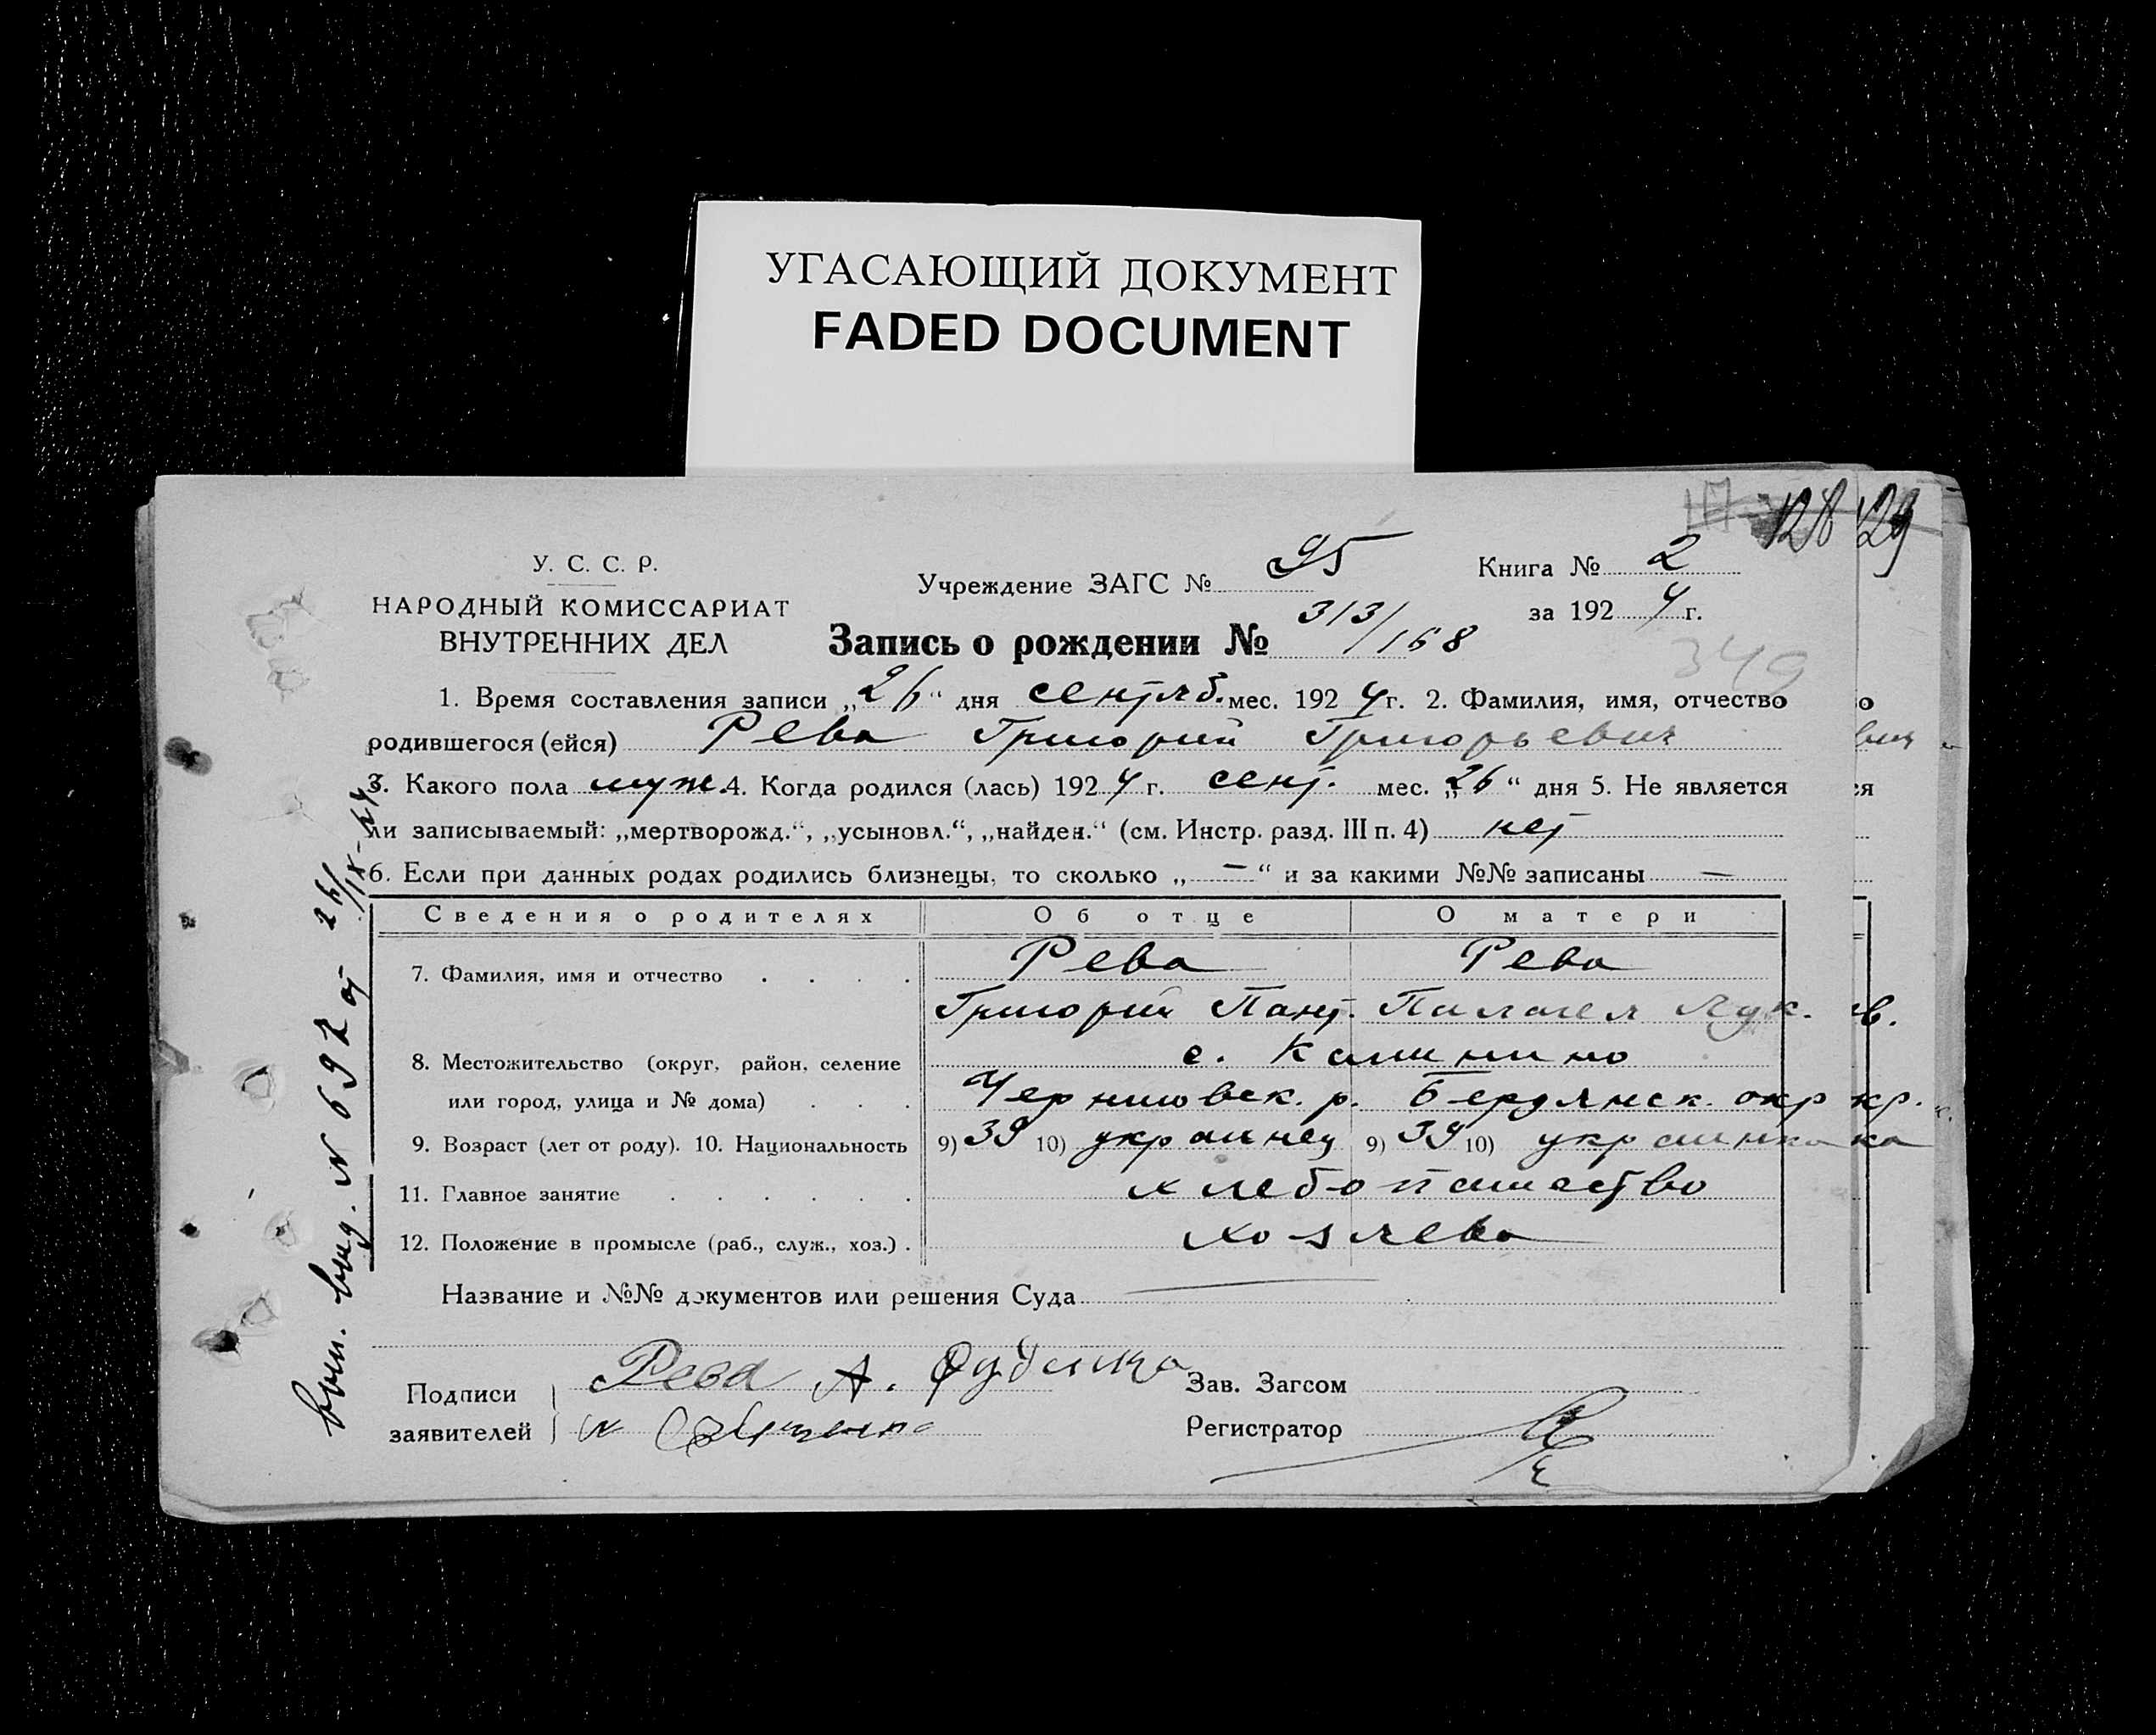 УГАСАЮЩИЙ ДОКУМЕНТ
FADED DOCUMENT
128 129
У. С. С. Р.
НАРОДНЫЙ КОМИССАРИАТ
ВНУТРЕННИХ ДЕЛ
Учреждение ЗАГС № 95
Книга № 2
за 1924 г.
Запись о рождении № 313/168
349
1. Время составления записи „26“ дня сентяб. мес. 1924 г. 2. Фамилия, имя, отчество
родившегося (ейся) Рева Григорий Григорьевич
3. Какого пола муж. 4. Когда родился (лась) 1924 г. сент. мес. „26“ дня 5. Не является
ли записываемый: „мертворожд.“, „усыновл.“, „найден.“ (см. Инстр. разд. III п. 4) нет
6. Если при данных родах родились близнецы, то сколько „—“ и за какими №№ записаны —
Сведения о родителях Об отце О матери
7. Фамилия, имя и отчество . . . . Рева Рева
Григорий Пант. Палагея Лук.
8. Местожительство (округ, район, селение с. Калинино
или город, улица и № дома) . . . Черниговск. р. Бердянск. окр
9. Возраст (лет от роду). 10. Национальность 9) 39 10) украинец 9) 39 10) украинка
11. Главное занятие . . . . . . хлебопашество
12. Положение в промысле (раб., служ., хоз.) . хозяева
Название и №№ документов или решения Суда
Подписи
заявителей
Рева А.
Зав. Загсом
Регистратор
вып. выд. № 692 от 26/IX-24